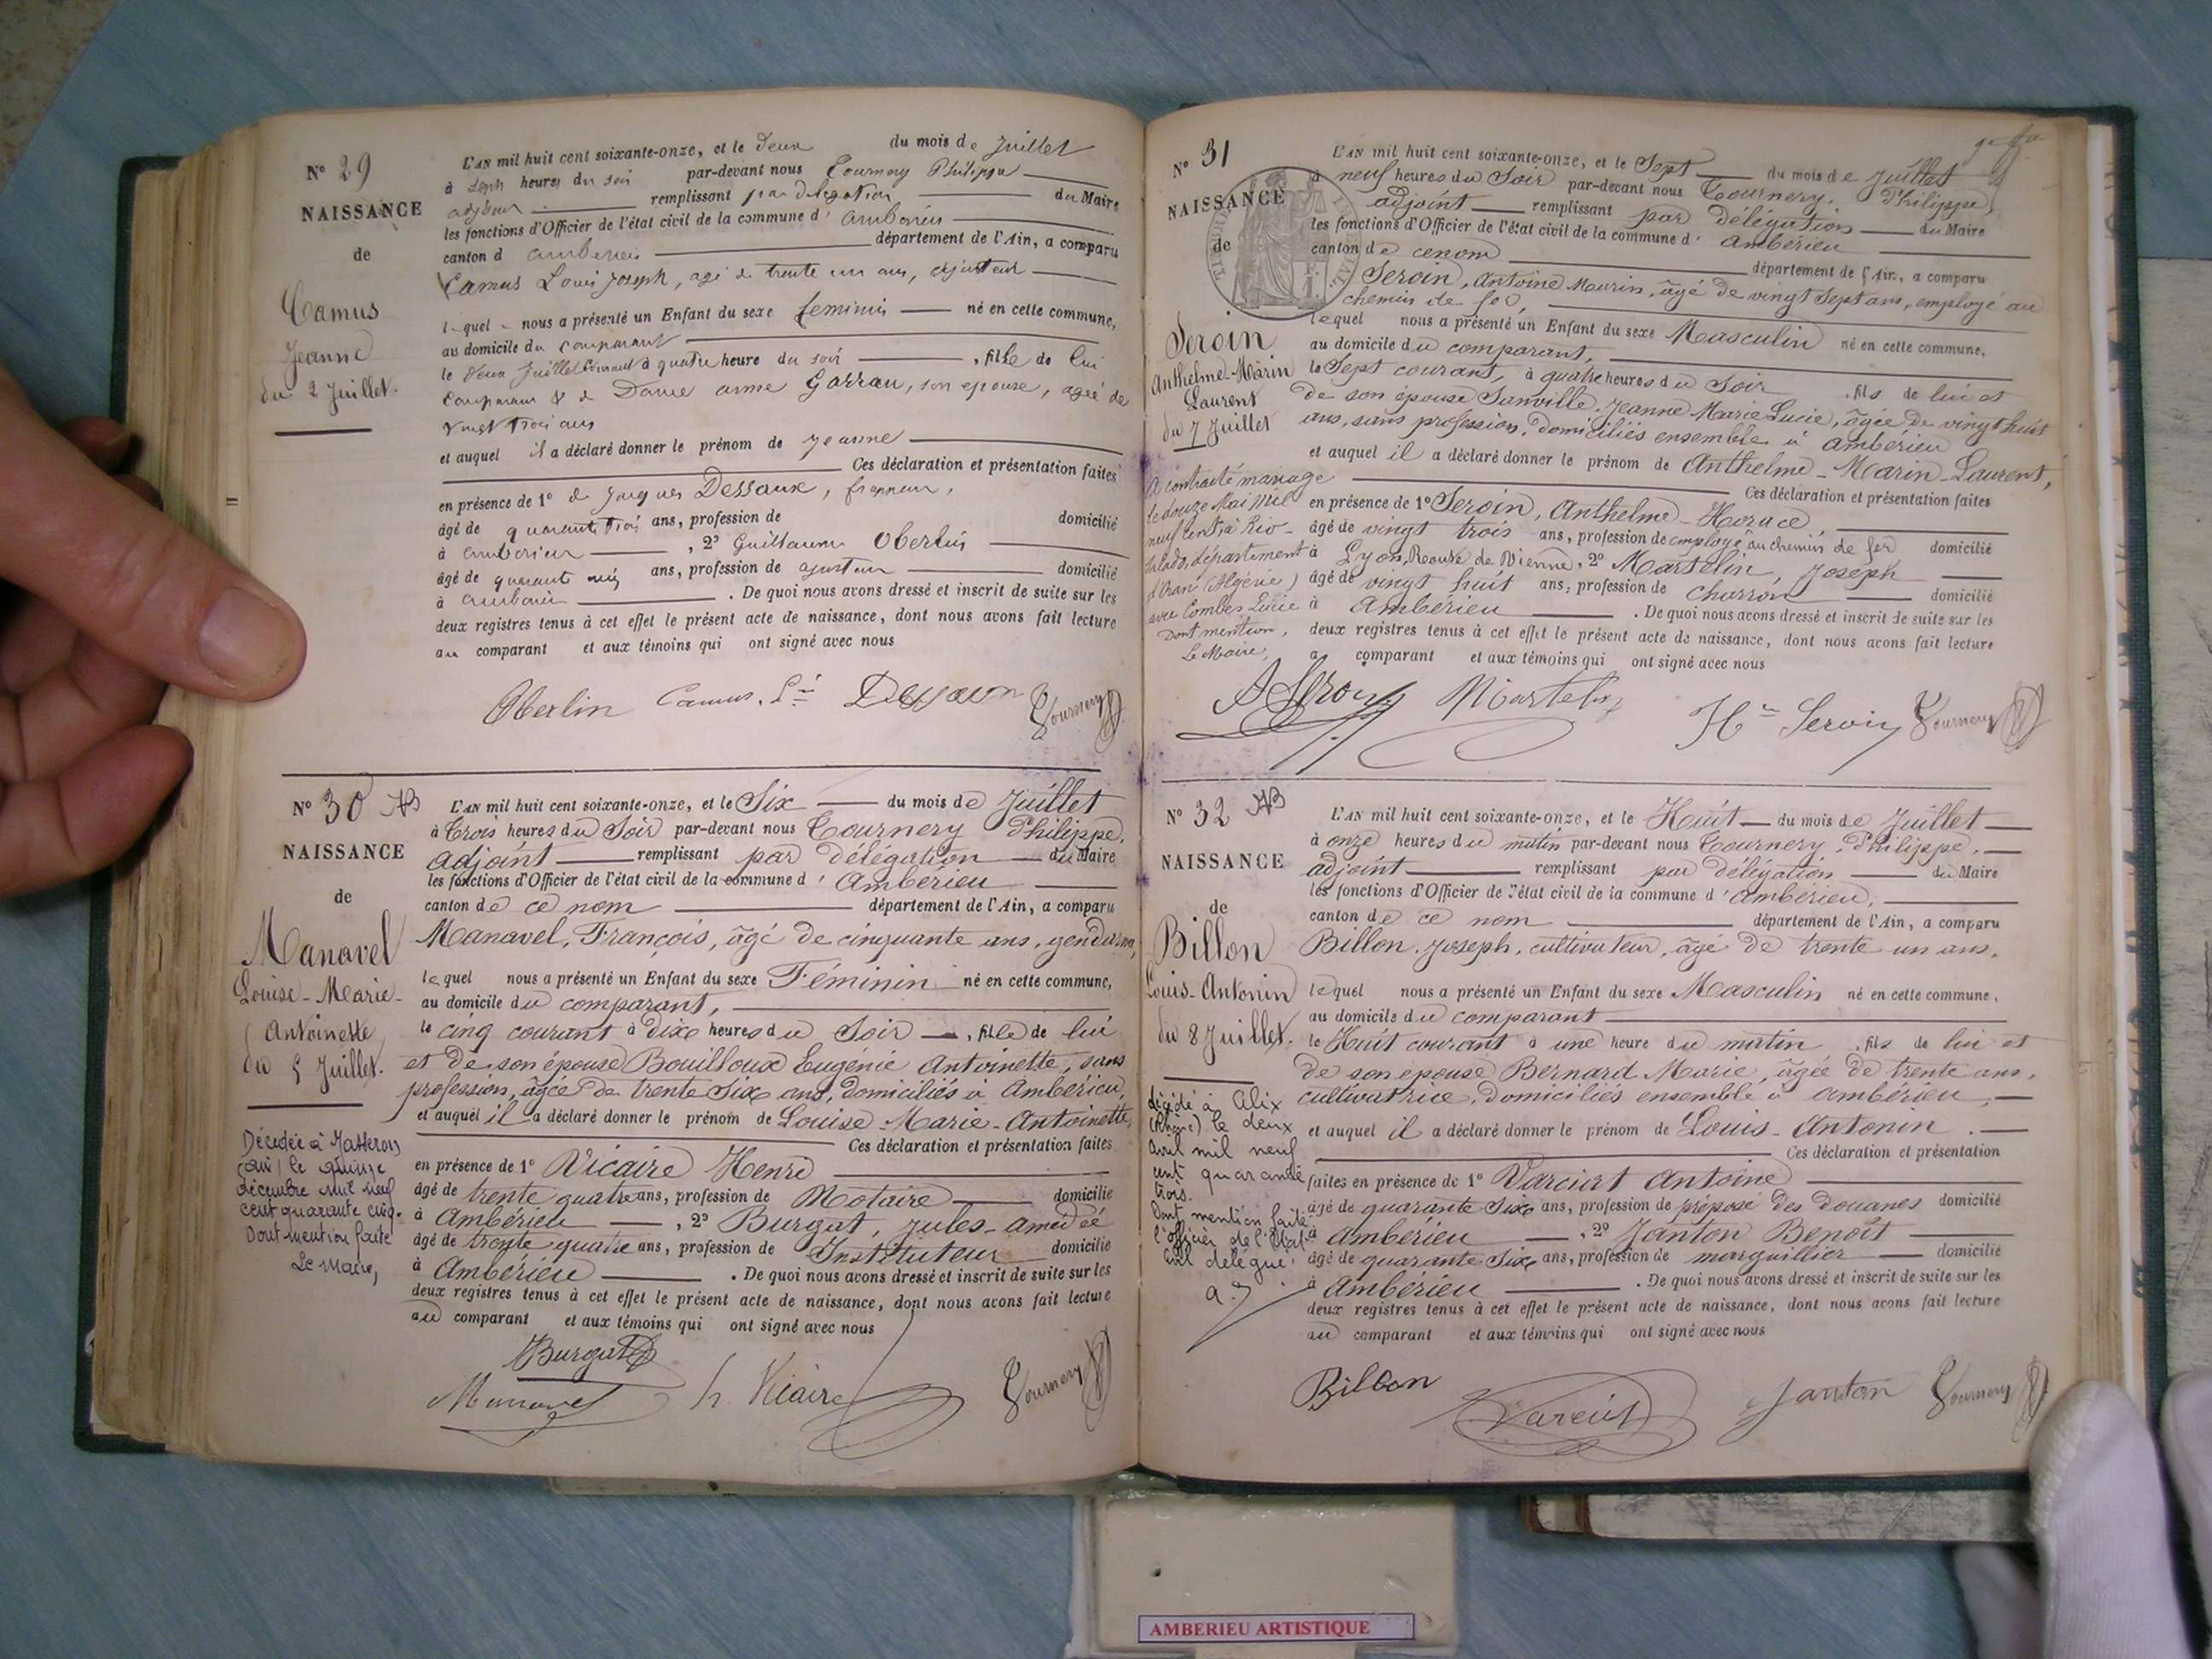 N° 29
NAISSANCE
de
Camus
Jeanne
du 2 Juillet.
L'AN mil huit cent soixante-onze, et le deux du mois de Juillet
à sept heures du soir par-devant nous Tournery Philippe
adjoint remplissant par délégation du Maire
les fonctions d'Officier de l'état civil de la commune d' ambérieu
canton d ambérieu département de l'Ain, a comparu
Camus Louis Joseph, agé de trente un ans, ajusteur
lequel nous a présenté un Enfant du sexe feminin né en cette commune,
au domicile du comparant
le deux Juillet courant à quatre heure du soir , fille de lui
comparant & de Dame anne Garrau, son epouse, agée de
vingt trois ans
et auquel il a déclaré donner le prénom de jeanne
Ces déclaration et présentation faites
en présence de 1° de Jacques Dessaux, frappeur,
âgé de quarante trois ans, profession de domicilié
à ambérieu , 2° Guillaume Oberlin
âgé de quarante ans, profession de ajusteur domicilié
à ambérieu . De quoi nous avons dressé et inscrit de suite sur les
deux registres tenus à cet effet le présent acte de naissance, dont nous avons fait lecture
au comparant et aux témoins qui ont signé avec nous
Oberlin Camus. Dessaux Tournery
N° 30
NAISSANCE
de
Manavel
Louise-Marie-
Antoinette
du 5 Juillet.
Décédée à
(ain) le quinze
décembre mil neuf
cent quarante cinq.
Dont mention faite
Le Maire,
L'AN mil huit cent soixante-onze, et le Six du mois de Juillet
à Trois heures du Soir par-devant nous Tournery Philippe,
adjoint remplissant par délégation du Maire
les fonctions d'Officier de l'état civil de la commune d' Ambérieu
canton de ce nom département de l'Ain, a comparu
Manavel, François, âgé de cinquante ans, gendarme,
lequel nous a présenté un Enfant du sexe Féminin né en cette commune,
au domicile du comparant,
le cinq courant à dix heures du Soir , fille de lui
et de son épouse Bouilloux Eugénie Antoinette, sans
profession, âgée de trente Six ans, domiciliés à Ambérieu,
et auquel il a déclaré donner le prénom de Louise-Marie-Antoinette,
Ces déclaration et présentation faites
en présence de 1° Vicaire Henri
âgé de trente quatre ans, profession de Notaire domicilié
à Ambérieu , 2° Burgat, Jules-amédée
âgé de trente quatre ans, profession de Instituteur domicilié
à Ambérieu . De quoi nous avons dressé et inscrit de suite sur les
deux registres tenus à cet effet le présent acte de naissance, dont nous avons fait lecture
au comparant et aux témoins qui ont signé avec nous
Burgat
Manavel h. Vicaire Tournery
N° 31
NAISSANCE
de
Seroin
Anthelme-Marin
Laurent
du 7 Juillet
A contracté mariage
le douze Mai mil
neuf cent à Rio-
Salado, département
d'Oran (Algérie)
avec Combes Lucie
Dont mention,
Le Maire,
L'AN mil huit cent soixante-onze, et le Sept du mois de Juillet
à neuf heures du Soir par-devant nous Tournery, Philippe,
adjoint remplissant par délégation du Maire
les fonctions d'Officier de l'état civil de la commune d' ambérieu
canton de ce nom département de l'Ain, a comparu
Seroin, Antoine Marin, âgé de vingt Sept ans, employé au
chemin de fer,
lequel nous a présenté un Enfant du sexe Masculin né en cette commune,
au domicile du comparant,
le Sept courant, à quatre heures du Soir , fils de lui et
de son épouse Sanville, Jeanne Marie Lucie, âgée de vingt huit
ans, sans profession, domiciliés ensemble à ambérieu
et auquel il a déclaré donner le prénom de Anthelme-Marin-Laurent,
Ces déclaration et présentation faites
en présence de 1° Seroin, Anthelme-Horace,
âgé de vingt trois ans, profession de employé au chemin de fer domicilié
à Lyon, Route de Vienne, 2° Martelin, Joseph
âgé de vingt huit ans, profession de charron domicilié
à Ambérieu . De quoi nous avons dressé et inscrit de suite sur les
deux registres tenus à cet effet le présent acte de naissance, dont nous avons fait lecture
a comparant et aux témoins qui ont signé avec nous
A Seroin Martelin Hce Seroin Tournery
N° 32
NAISSANCE
de
Billon
Louis-Antonin
du 8 Juillet.
décédé à Alix
(Rhône) le deux
avril mil neuf
cent quarante
trois.
Dont mention faite
l'officier de l'état
civil délégué.
L'AN mil huit cent soixante-onze, et le Huit du mois de Juillet
à onze heures du matin par-devant nous Tournery, Philippe,
adjoint remplissant par délégation du Maire
les fonctions d'Officier de l'état civil de la commune d' ambérieu,
canton de ce nom département de l'Ain, a comparu
Billon, Joseph, cultivateur, âgé de trente un ans,
lequel nous a présenté un Enfant du sexe Masculin né en cette commune,
au domicile du comparant
le Huit courant à une heure du matin , fils de lui et
de son epouse Bernard Marie, âgée de trente ans,
cultivatrice, domiciliés ensemble à ambérieu,
et auquel il a déclaré donner le prénom de Louis-Antonin.
Ces déclaration et présentation
faites en présence de 1° Antoine
âgé de quarante Six ans, profession de préposé des Douanes domicilié
à ambérieu , 2° Janton Benoît
âgé de quarante Six ans, profession de marguillier domicilié
à ambérieu . De quoi nous avons dressé et inscrit de suite sur les
deux registres tenus à cet effet le présent acte de naissance, dont nous avons fait lecture
au comparant et aux témoins qui ont signé avec nous
Billon Janton Tournery
AMBERIEU ARTISTIQUE